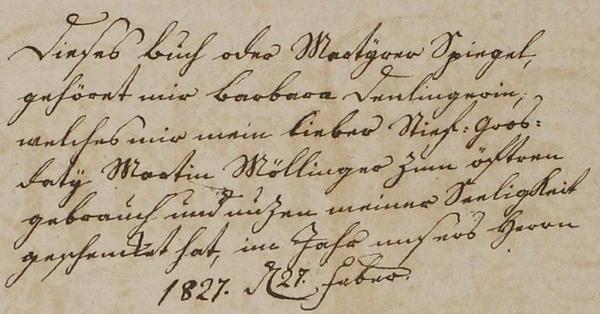 Dieses buch oder Martÿrer Spiegel,
gehöret mir barbara Denlingerin,
welches mir mein lieber Stief=Gros=
datÿ Martin Möllinger zum öftren
gebrauch und nuzen meiner Seeligkeit
geschencket hat, im Jahr unsers Herrn
1827. d 27. Feber.